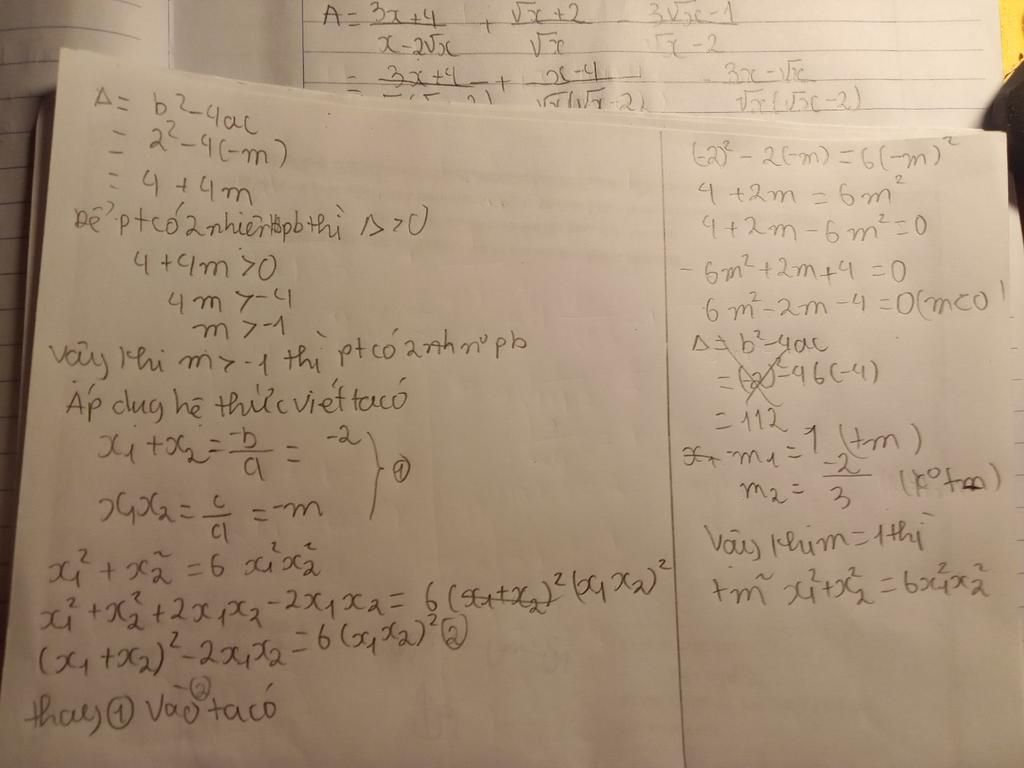 A = 3x+4/x-2√x + √x+2/√x - 3√x-1/√x-2
= 3x+4 + x-4/√x(√x-2) - 3x-√x/√x(√x-2)
Δ = b²-4ac
= 2²-4(-m)
= 4+4m
Để pt có 2 nhiệm pb thì Δ>0
4+4m>0
4m>-4
m>-1
Vậy khi m>-1 thì pt có 2 nh nº pb
Áp dug hệ thức viét ta có
x₁+x₂ = -b/a = -2
x₁x₂ = c/a = -m
①
x₁²+x₂² = 6 x₁²x₂²
x₁²+x₂²+2x₁x₂-2x₁x₂ = 6(x₁+x₂)²(x₁x₂)²
(x₁+x₂)²-2x₁x₂ = 6(x₁x₂)² ②
thay ① vào ② ta có
(-2)²-2(-m)=6(-m)²
4+2m=6m²
4+2m-6m²=0
-6m²+2m+4=0
6m²-2m-4=0 (m<0
Δ = b²-4ac
= ²-46(-4)
= 112
x₁ m₁ = 1 (tm)
m₂ = -2/3 (kº tm)
Vậy khi m=1 thì
tmĩ x₁²+x₂² = 6x₁²x₂²